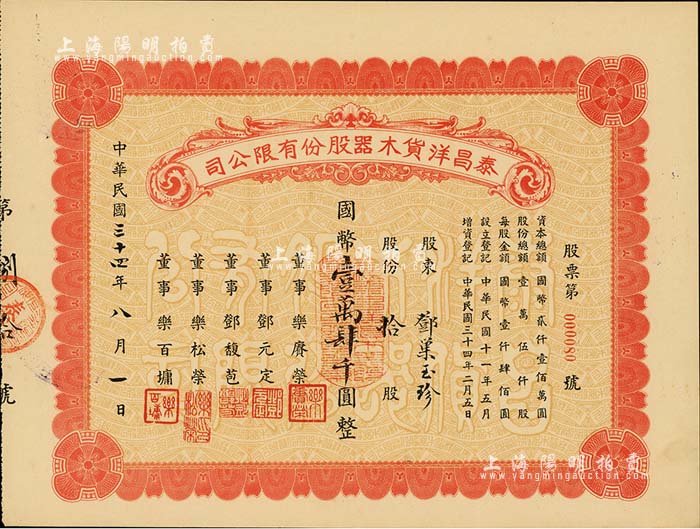 上海陽明拍賣
www.yangmingauction.com
泰昌洋貨木器股份有限公司
股票第 0000080 號
資本總額 國幣貳仟壹佰萬圓
股份總額 壹萬伍仟股
每股金額 國幣壹仟肆佰圓
設立登記 中華民國十一年五月
增資登記 中華民國三十四年二月五日
股東 鄧巢玉珍
股份 拾 股
國幣壹萬肆千圓整
董事 樂賡榮
董事 鄧元定
董事 鄧馥苞
董事 樂松榮
董事 樂百墉
中華民國三十四年八月一日
第 捌拾 號
上海陽明拍賣
www.yangmingauction.com